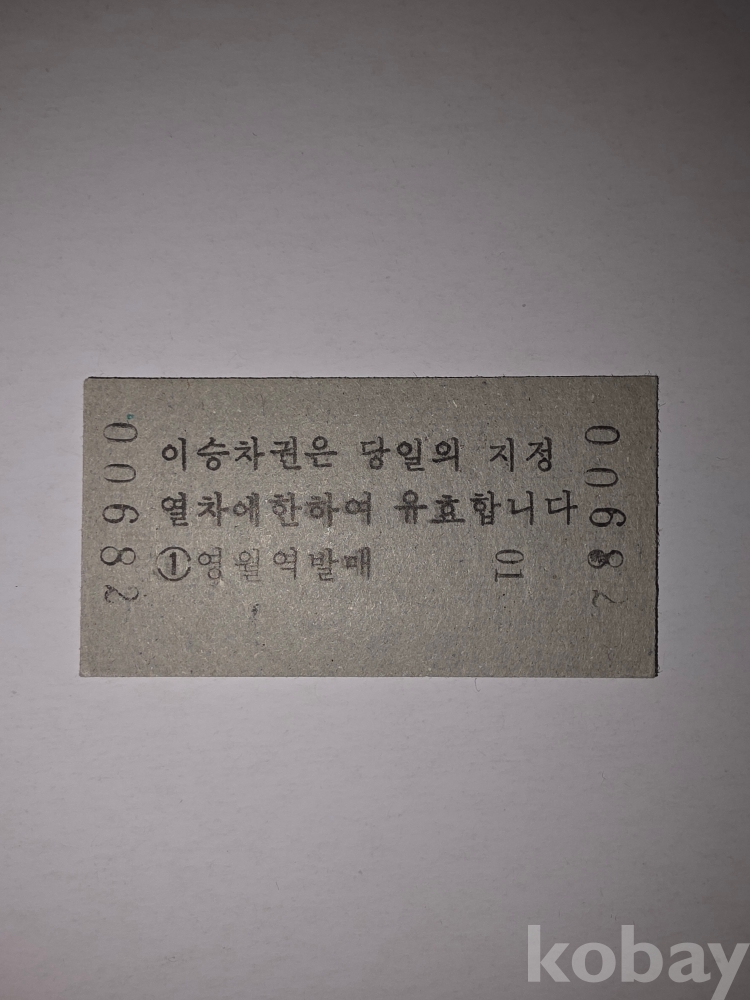 이승차권은 당일의 지정
열차에한하여 유효합니다
①영월역발매
01
00682
00682
kobay